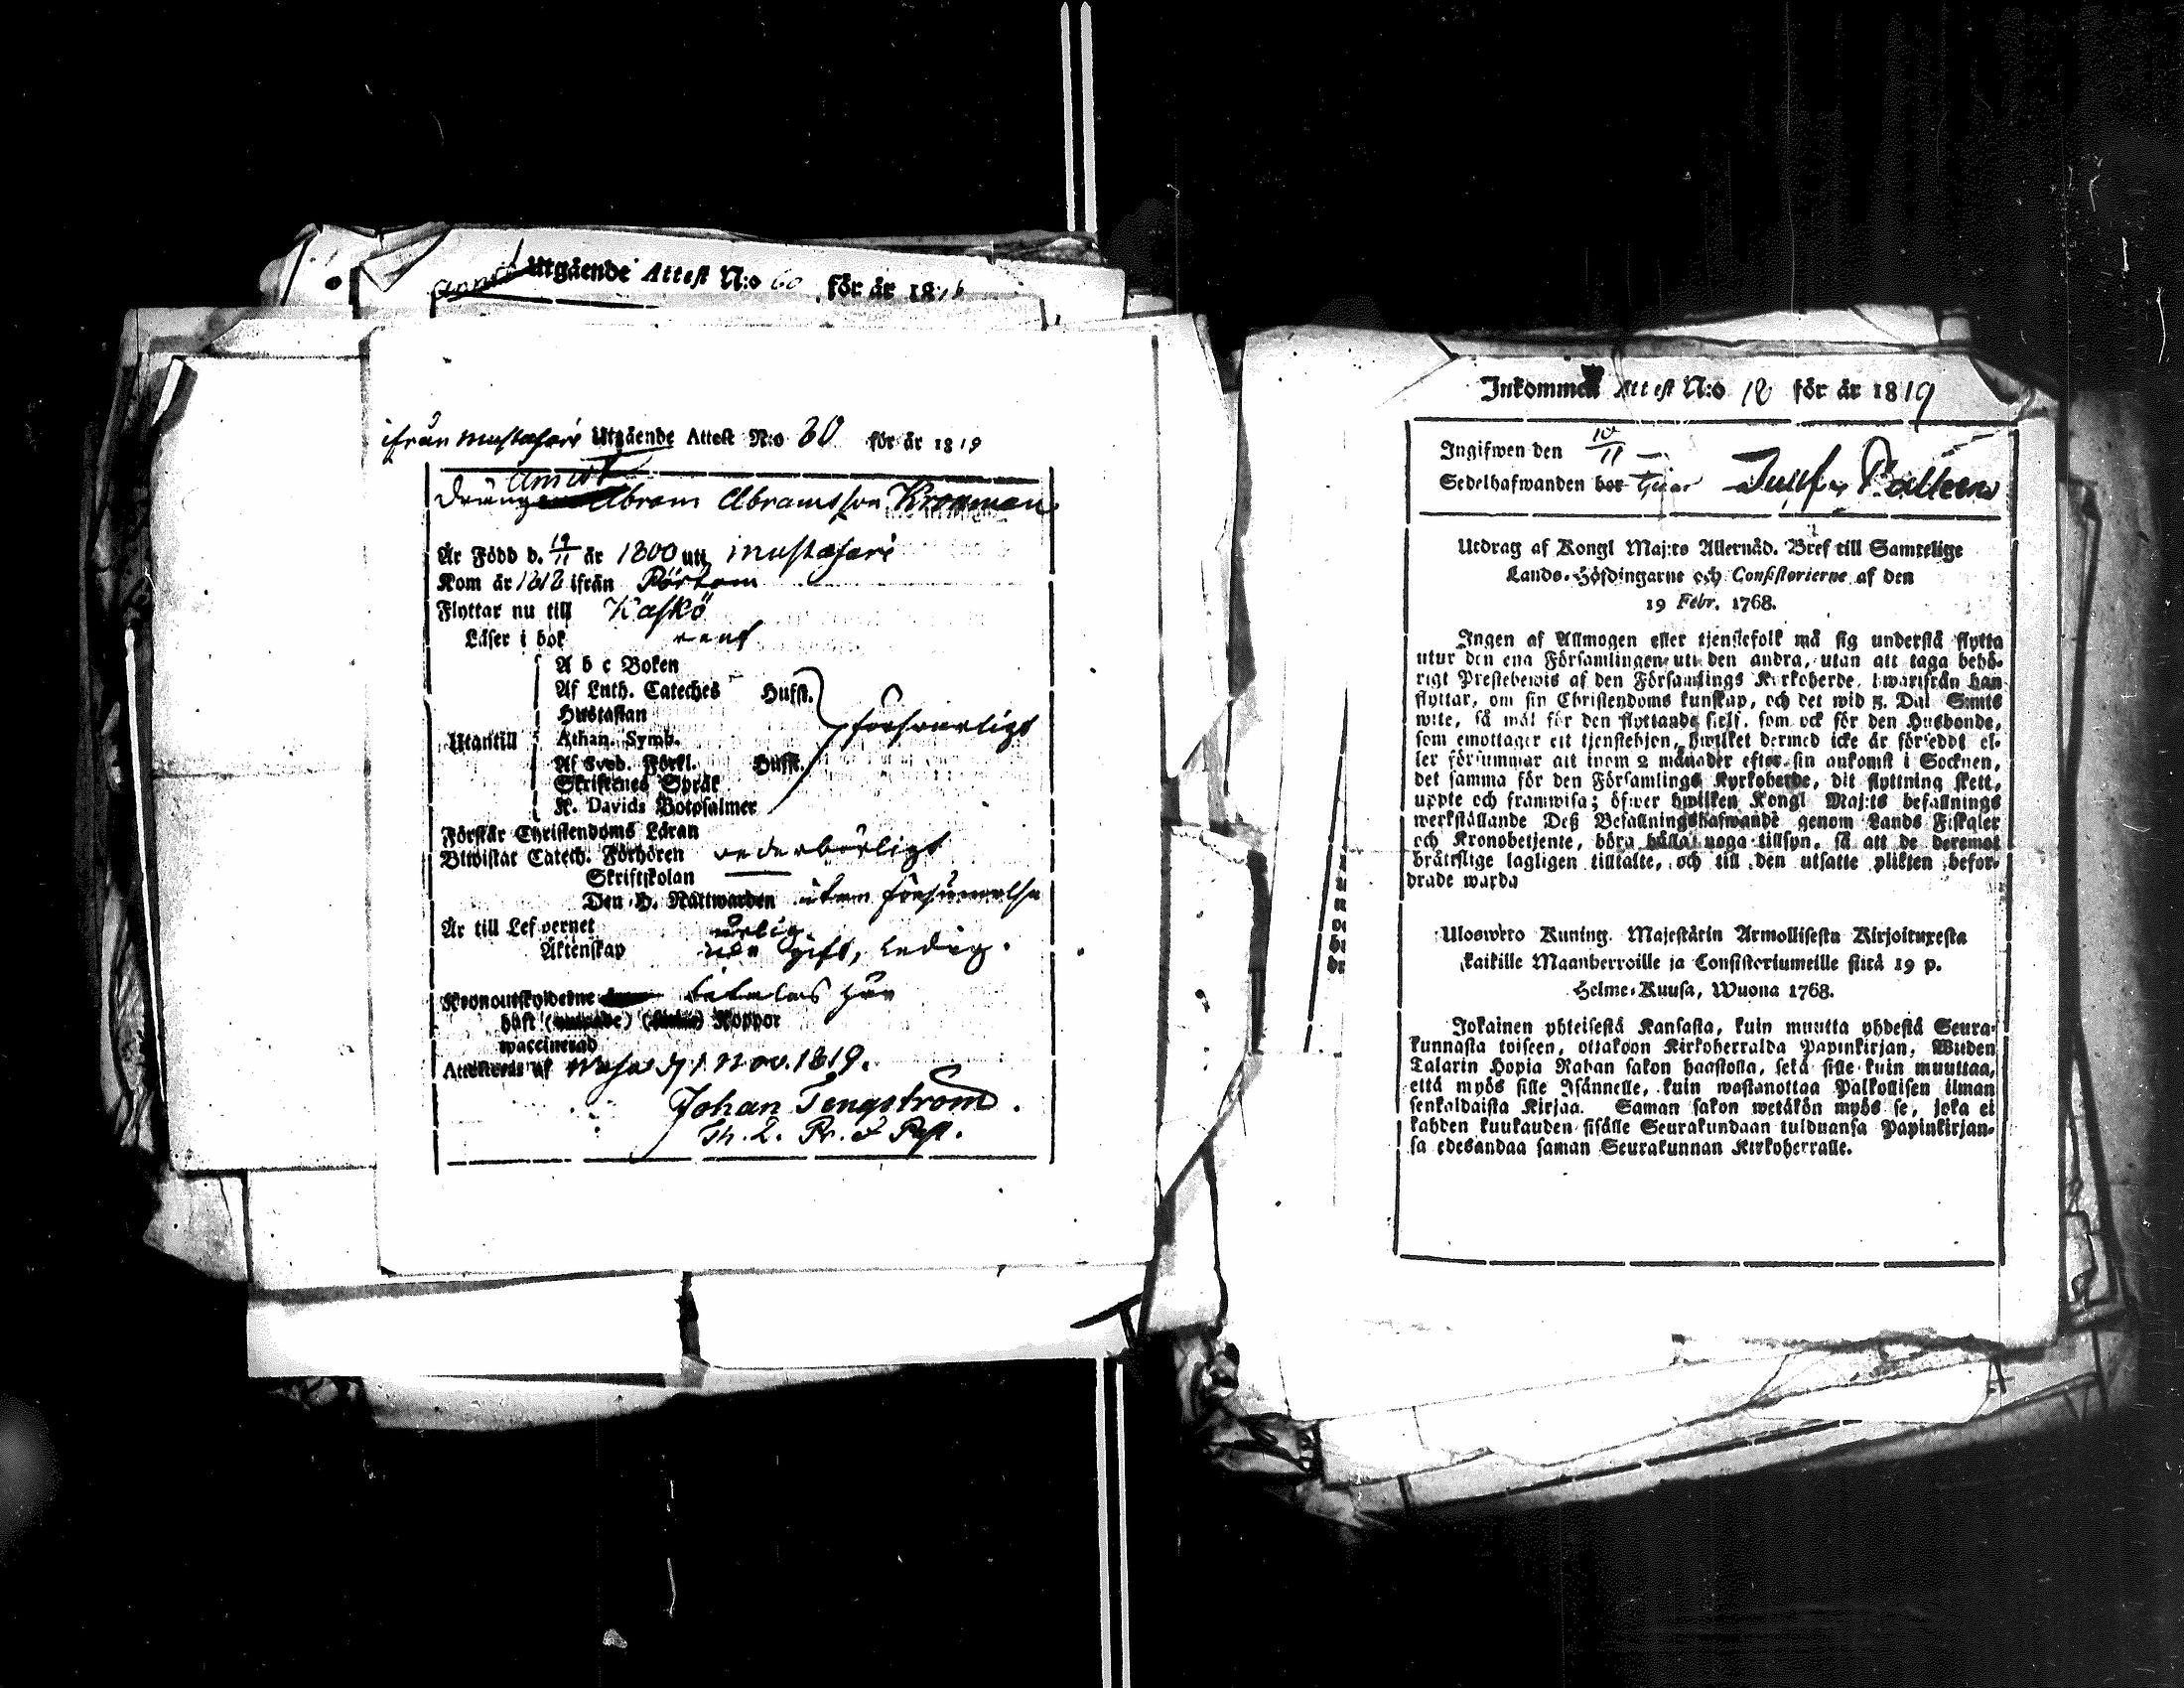 Utgående Attest N:o 60 för år 18
ifrån Mustasari Utgående Attest N:o 30 för år 1819
Drängen Abram Abramsson Kronman
Är Född d. 19/11 år 1800 utj Mustasari
Kom år 1818 ifrån Pörtom
Flyttar nu till Kaskö
Läser i bok rent
A b c Boken
Af Luth. Cateches Husft.
Hustaflan
försvarligt
Utantill Athan. Symb.
Af Sveb. Förkl. Husft.
Skriftenes Språk
K. Davids Botpsalmer
Förstår Christendoms Läran
Biwistat Catech. Förhören vederbörligt
Skriftskolan
Den H. Nattwarden utan försummelse
Är till Lefvernet ärlig
Äktenskap ledig.
Kronoutskylderne betalas här
haft Koppor
waccinerad
Attesteras af Wasa d. 1 Nov. 1819.
Johan Tengström.
Th. L. Pr. & Past.
Inkommen Attest N:o 18 för år 1819
Ingifwen den 10/11
Sedelhafwanden bor
Utdrag af Kongl Maj:ts Allernåd. Bref till Samtelige
Lands-Höfdingarne och Consistorierne af den
19 Febr. 1768.
Ingen af Allmogen eller tjenstefolk må sig understå flytta
utur den ena Församlingen uti den andra, utan att taga behö-
rigt Prestebewis af den Församlings Kyrkoherde, hwarifrån han
flyttar, om sin Christendoms kunskap, och det wid 5. Dal S:mts
wite, så wäl för den flyttande sielf, som ock för den Husbonde,
som emottager ett tjenstehjon, hwilket dermed icke är försedt el-
ler försummar att inom 2 månader efter sin ankomst i Socknen,
det samma för den Församlings Kyrkoherde, dit flyttning skett,
uppte och framwisa; öfwer hwilken Kongl Maj:ts befallnings
werkställande Deß Befallningshafwande genom Lands Fiskaler
och Kronobetjente, böra hålla noga tillsyn, så att de deremot
bråttslige lagligen tilltalte, och till den utsatte plikten befor-
drade warda
Uloswето Kuning. Majestätin Armollisesta Kirjoituxesta
kaikille Maanherroille ja Consistoriumeille siitä 19 p.
Helme-Kuusa, Wuona 1768.
Jokainen yhteisestä Kansasta, kuin muutta yhdestä Seura-
kunnasta toiseen, ottakoon Kirkoherralda Papinkirjan, Wiiden
Talarin Hopia Rahan sakon haastolla, sekä sille kuin muuttaa,
että myös sille Isännelle, kuin wastanottaa Palkollisen ilman
senkaldaista Kirjaa. Saman sakon wetäkön myös se, joka ei
kahden kuukauden sisälle Seurakundaan tulduansa Papinkirjan-
sa edesandaa saman Seurakunnan Kirkoherralle.